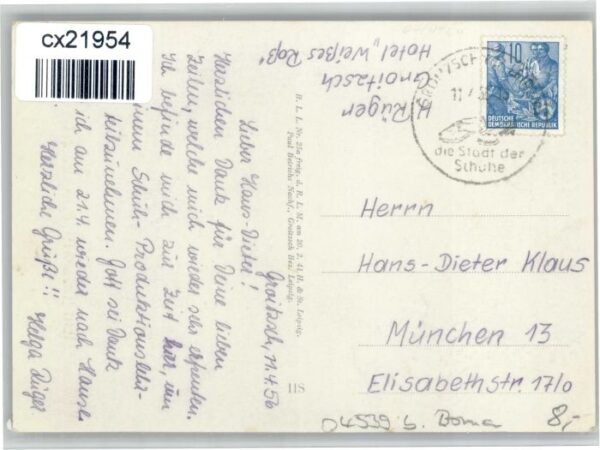 cx21954
Groitzsch, 11.4.56
Lieber Hans-Dieter!
Herzlichen Dank für Deine lieben
Zeilen, welche mich wieder sehr erfreuten.
Ich befinde mich zur Zeit hier, um
einem Schuh-Produktionslehr-
teilzunehmen. Gott sei Dank
ich am 21.4. wieder nach Hause.
Herzliche Grüße!!
Helga Rüger
H. Rüger
Groitzsch
Hotel „Weißes Roß"
B. L. L. Nr. 25a freig. d. R. L. M. am 20. 2. 41.
Paul Beinke Nachf., Groitzsch Bez. Leipzig.
118
10
DEUTSCHE
DEMOKRATISCHE REPUBLIK
die Stadt der
Schuhe
Herrn
Hans-Dieter Klaus
München 13
Elisabethstr. 17/0
04539 b. Borna
8,-